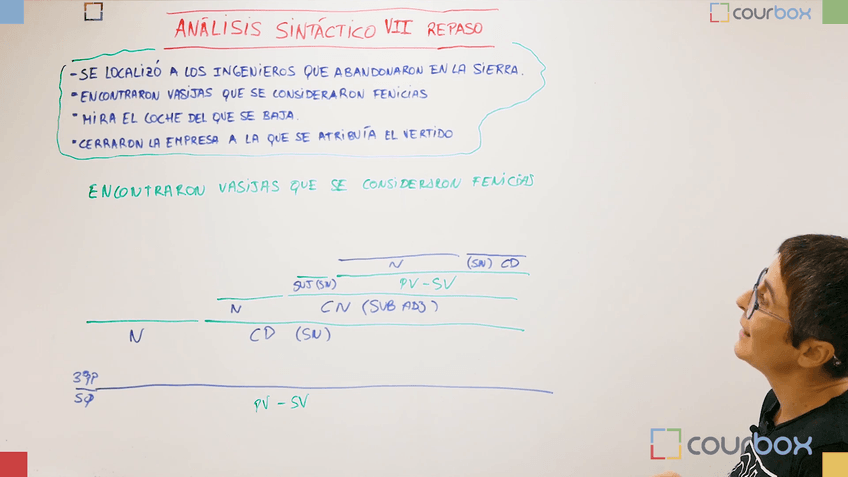 ANÁLISIS SINTÁCTICO VII REPASO
courbox
- SE LOCALIZÓ A LOS INGENIEROS QUE ABANDONARON EN LA SIERRA.
• ENCONTRARON VASIJAS QUE SE CONSIDERARON FENICIAS
• MIRA EL COCHE DEL QUE SE BAJA.
• CERRARON LA EMPRESA A LA QUE SE ATRIBUÍA EL VERTIDO
ENCONTRARON VASIJAS QUE SE CONSIDERARON FENICIAS
N (SN) CD
SUJ (SN) PV-SV
N CN (SUB ADJ)
N CD (SN)
3ªpp
SØ PV-SV
courbox